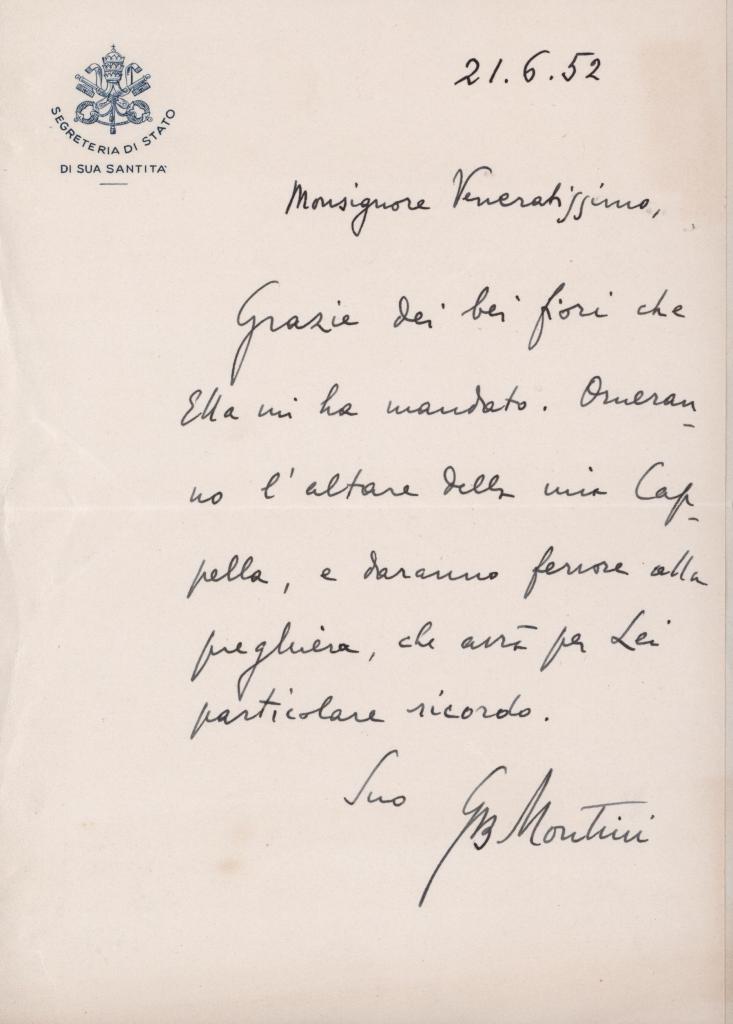 21.6.52
SEGRETERIA DI STATO
DI SUA SANTITA'
Monsignore Veneratissimo,
Grazie dei bei fiori che
Ella mi ha mandato. Orneran-
no l'altare della mia Cap-
pella, e daranno fervore alla
preghiera, che avrà per Lei
particolare ricordo.
Suo GBMontini